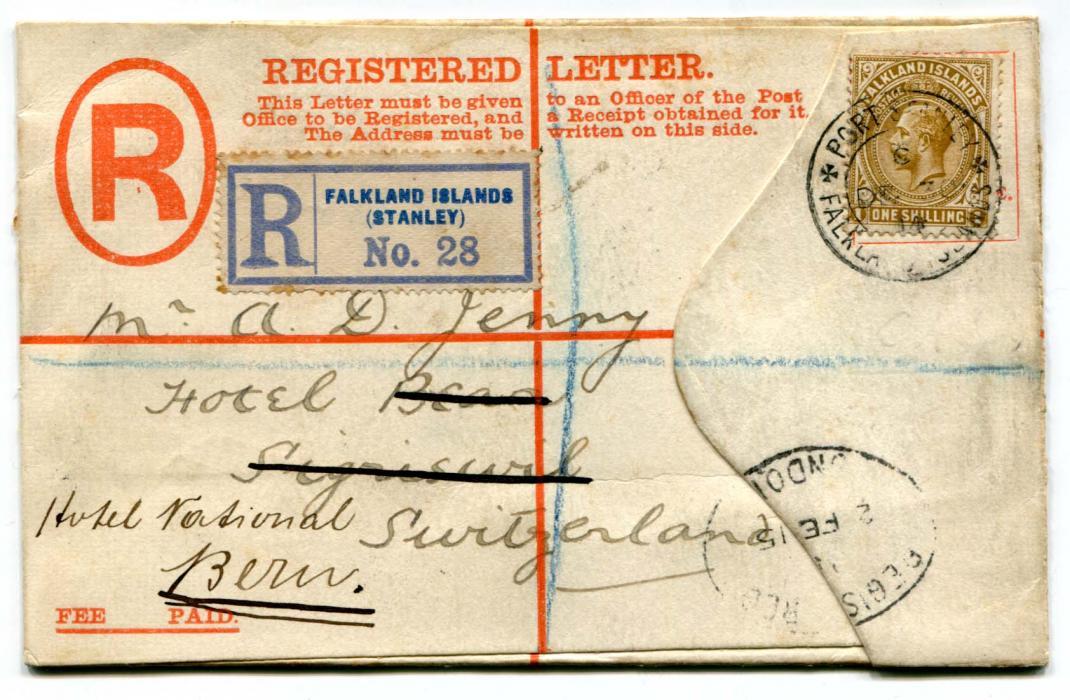 REGISTERED LETTER.
This Letter must be given to an Officer of the Post
Office to be Registered, and a Receipt obtained for it.
The Address must be written on this side.
R
FALKLAND ISLANDS
POSTAGE
ONE SHILLING
PORT
FALKLA
R
FALKLAND ISLANDS
(STANLEY)
No. 28
Mr A. D. Jenny
Hotel
Sigriswil
Hotel National
Switzerland
Bern.
FEE PAID.
ONDON
2 FE 15
REGIS RED